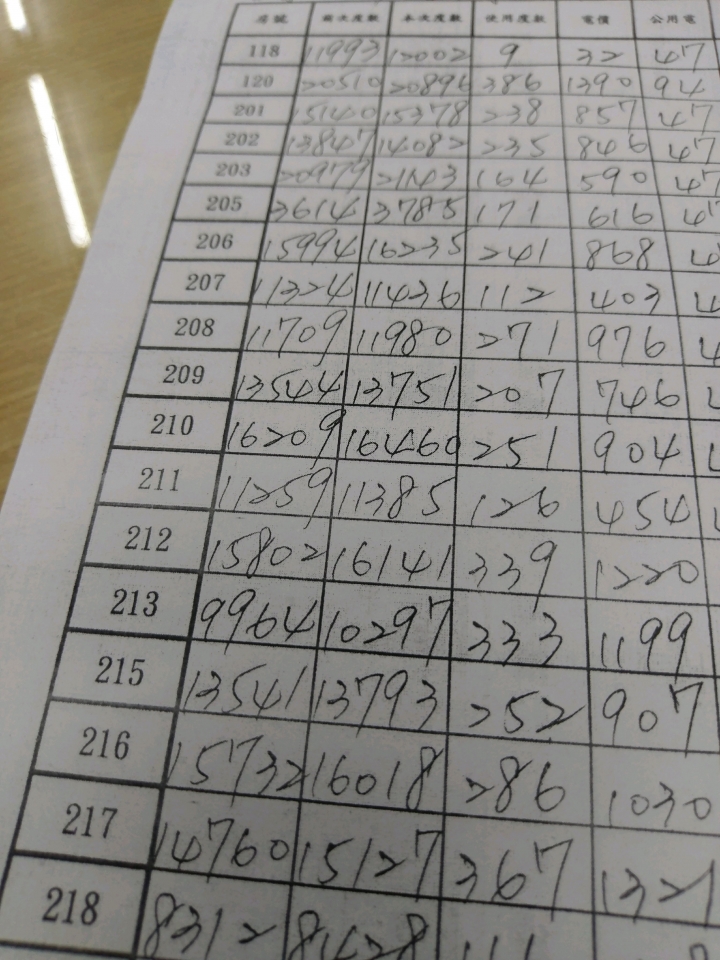 房號 前次度數 本次度數 使用度數 電價 公用電
118 11993 12002 9 32 47
120 20510 20896 386 1390 94
201 15140 15378 238 857 47
202 13847 14082 235 846 47
203 20979 21143 164 590 47
205 3614 3785 171 616 47
206 15994 16235 241 868
207 11324 11436 112 403
208 11709 11980 271 976
209 13544 13751 207 746
210 16209 16460 251 904
211 11259 11385 126 454
212 15802 16141 339 1220
213 9964 10297 333 1199
215 13541 13793 252 907
216 15732 16018 286 1030
217 14760 15127 367 1321
218 8312